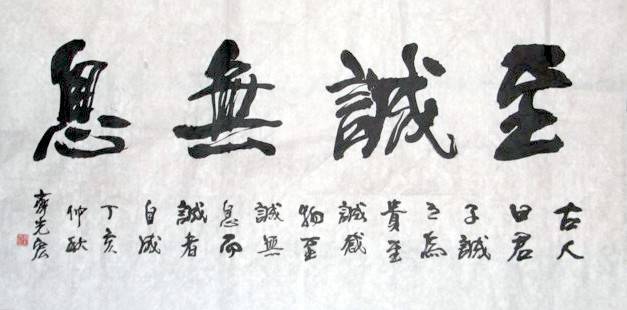 至誠無息
古人
曰君
子誠
之為
貴至
誠感
物至
誠無
息而
誠者
自成
丁亥
仲秋